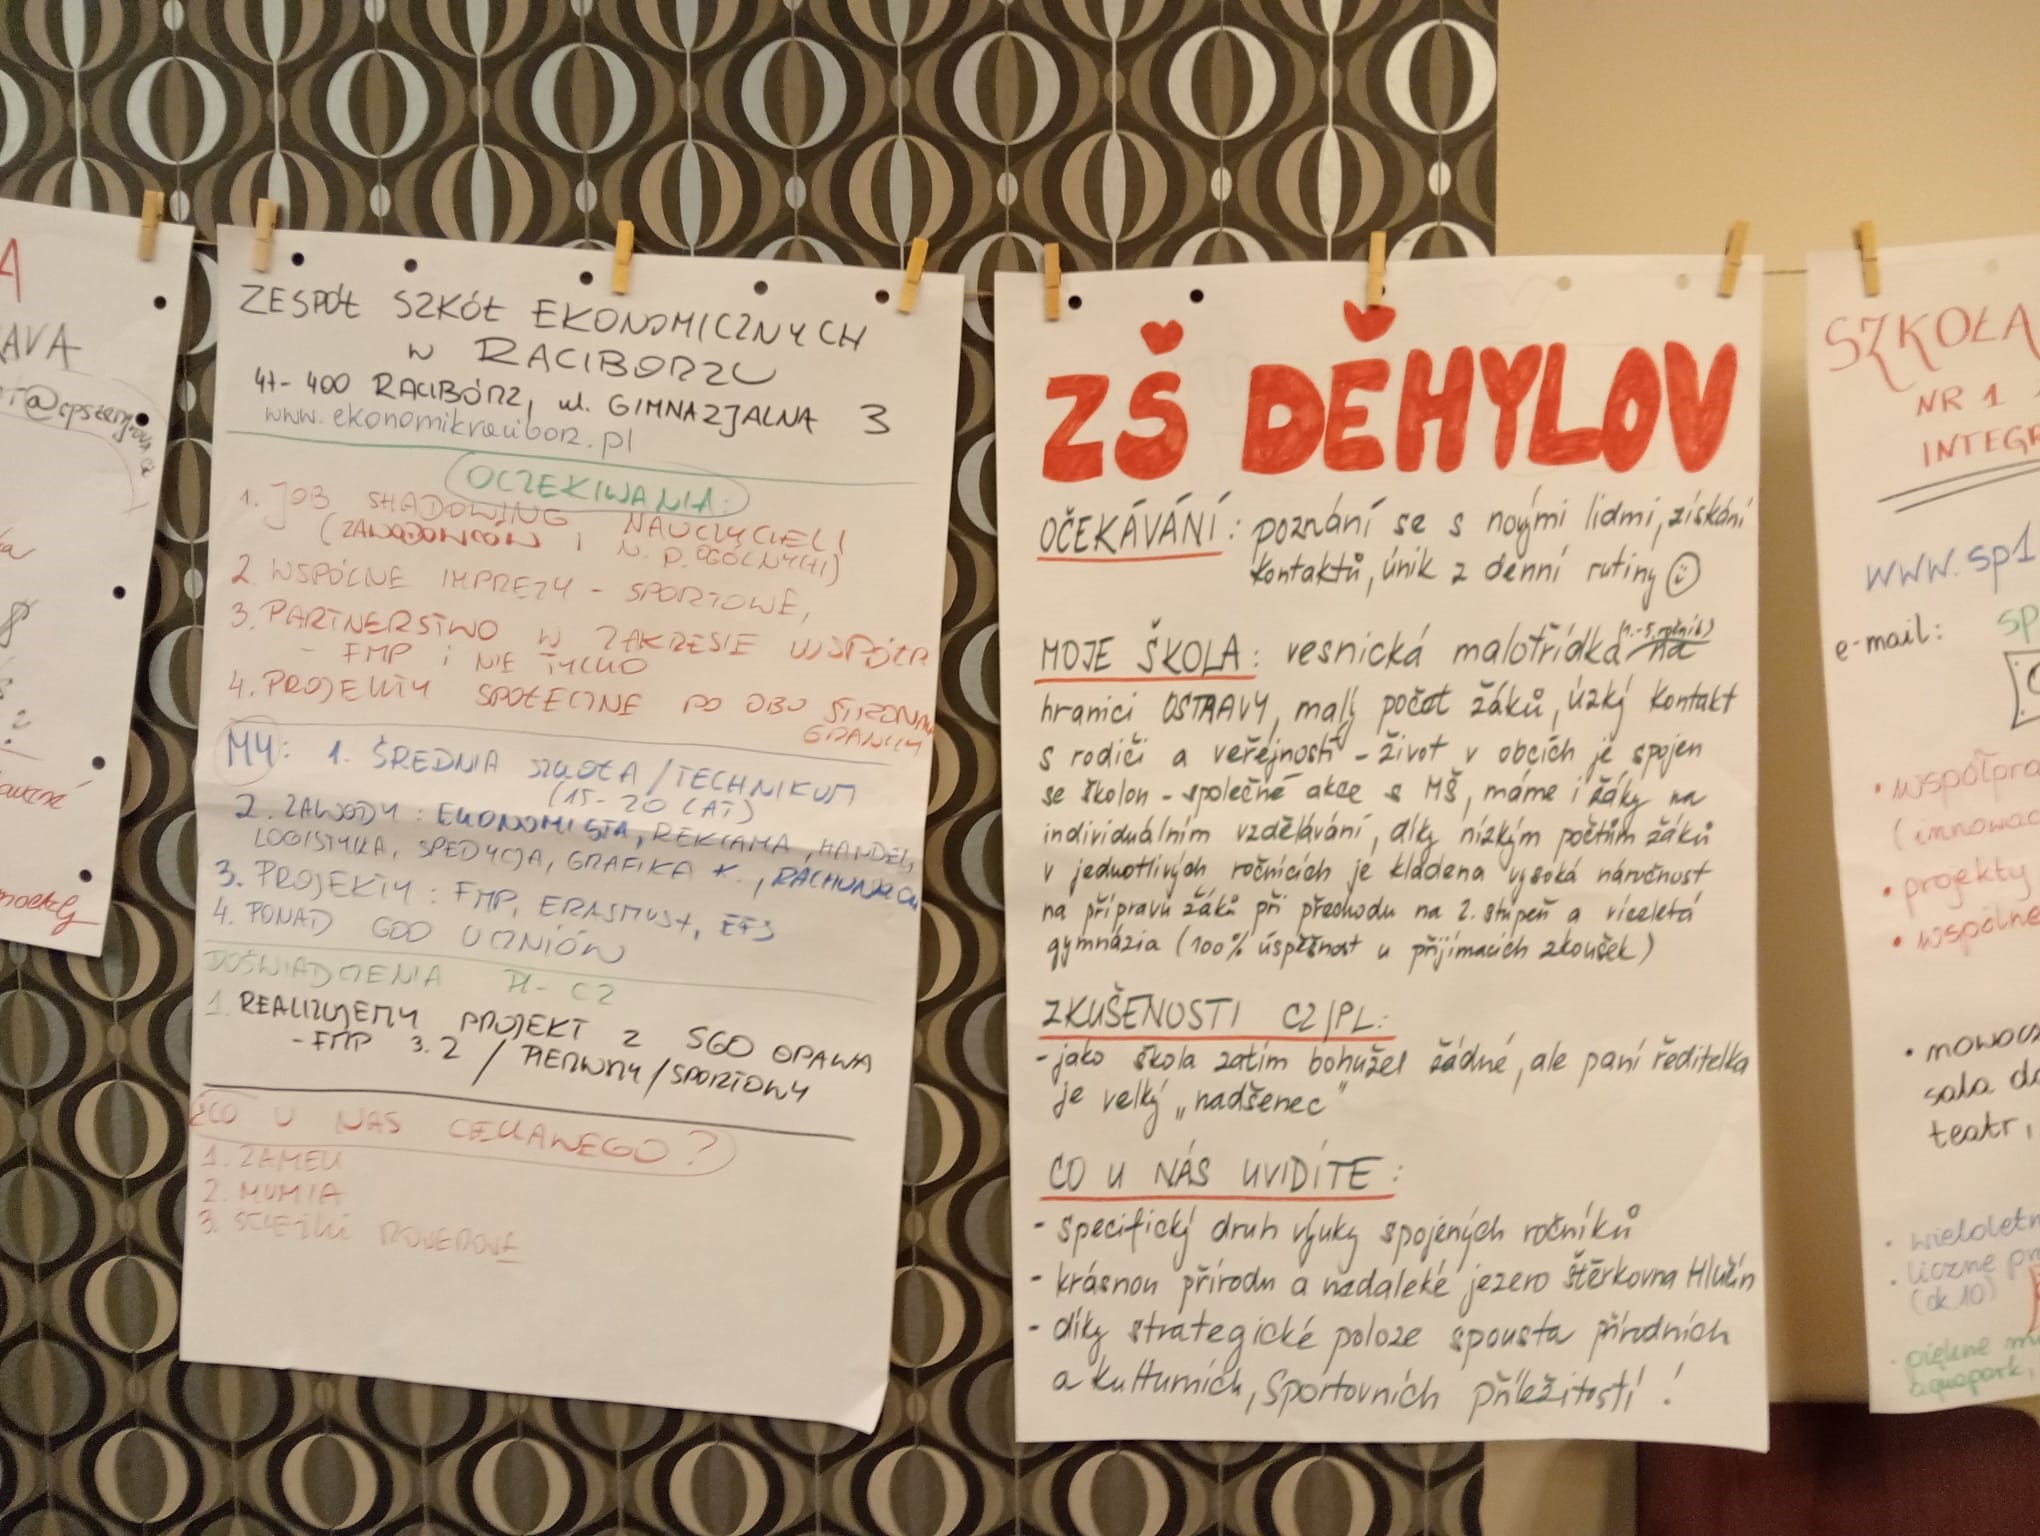 A
AVA
ZESPÓŁ SZKÓŁ EKONOMICZNYCH
W RACIBORZU
47-400 RACIBÓRZ, ul. GIMNAZJALNA 3
www.ekonomikraciborz.pl
OCZEKIWANIA:
1. JOB SHADOWING NAUCZYCIELI
(ZAWODOWCÓW I N. P. OGÓLNYCH)
2. WSPÓLNE IMPREZY - SPORTOWE,
3. PARTNERSTWO W ZAKRESIE WSPÓŁPR
- FMP i NIE TYLKO
4. PROJEKTY SPOŁECZNE PO OBU STRONACH
GRANICY
MY: 1. ŚREDNIA SZKOŁA / TECHNIKUM
(15-20 LAT)
2. ZAWODY: EKONOMISTA, REKLAMA, HANDEL,
LOGISTYKA, SPEDYCJA, GRAFIKA K., RACHUNKOW
3. PROJEKTY: FMP, ERASMUS+, EFS
4. PONAD 600 UCZNIÓW
DOŚWIADCZENIA PL-CZ
1. REALIZUJEMY PROJEKT Z SGO OPAWA
- FMP 3.2 / PIERWSZY / SPORTOWY
CO U NAS CIEKAWEGO?
1. ZAMEK
2. MUMIA
3. ŚCIEŻKI ROWEROWE
ZŠ DĚHYLOV
OČEKÁVÁNÍ: poznání se s novými lidmi, získání
kontaktů, únik z denní rutiny ☺
MOJE ŠKOLA: vesnická malotřídka (1.-5. ročník) na
hranici OSTRAVY, malý počet žáků, úzký kontakt
s rodiči a veřejností - život v obcích je spojen
se školou - společné akce s MŠ, máme i žáky na
individuálním vzdělávání, díky nízkým počtům žáků
v jednotlivých ročnících je kladena vysoká náročnost
na přípravu žáků při přechodu na 2. stupeň a víceletá
gymnázia (100% úspěšnost u přijímacích zkoušek)
ZKUŠENOSTI CZ/PL:
- jako škola zatím bohužel žádné, ale paní ředitelka
je velký „nadšenec"
CO U NÁS UVIDÍTE:
- specifický druh výuky spojených ročníků
- krásnou přírodu a nedaleké jezero štěrkovna Hlučín
- díky strategické poloze spousta přírodních
a kulturních, sportovních příležitostí!
SZKOŁA
NR 1
INTEGR
www.sp1
e-mail: sp
• współpra
(innowac
• projekty
• wspólne
• nowocz
sala do
teatr,
• wieloletn
• liczne pr
(ok. 10)
• piękne mi
aquapark,